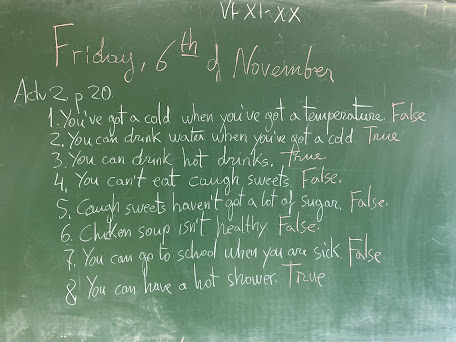 VI-XI-XX
Friday, 6th of November
Actv 2. p.20.
1. You've got a cold when you've got a temperature. False
2. You can drink water when you've got a cold. True
3. You can drink hot drinks. True.
4. You can't eat caugh sweets. False.
5. Caugh sweets haven't got a lot of sugar. False.
6. Chicken soup isn't healthy. False.
7. You can go to school when you are sick. False.
8. You can have a hot shower. True